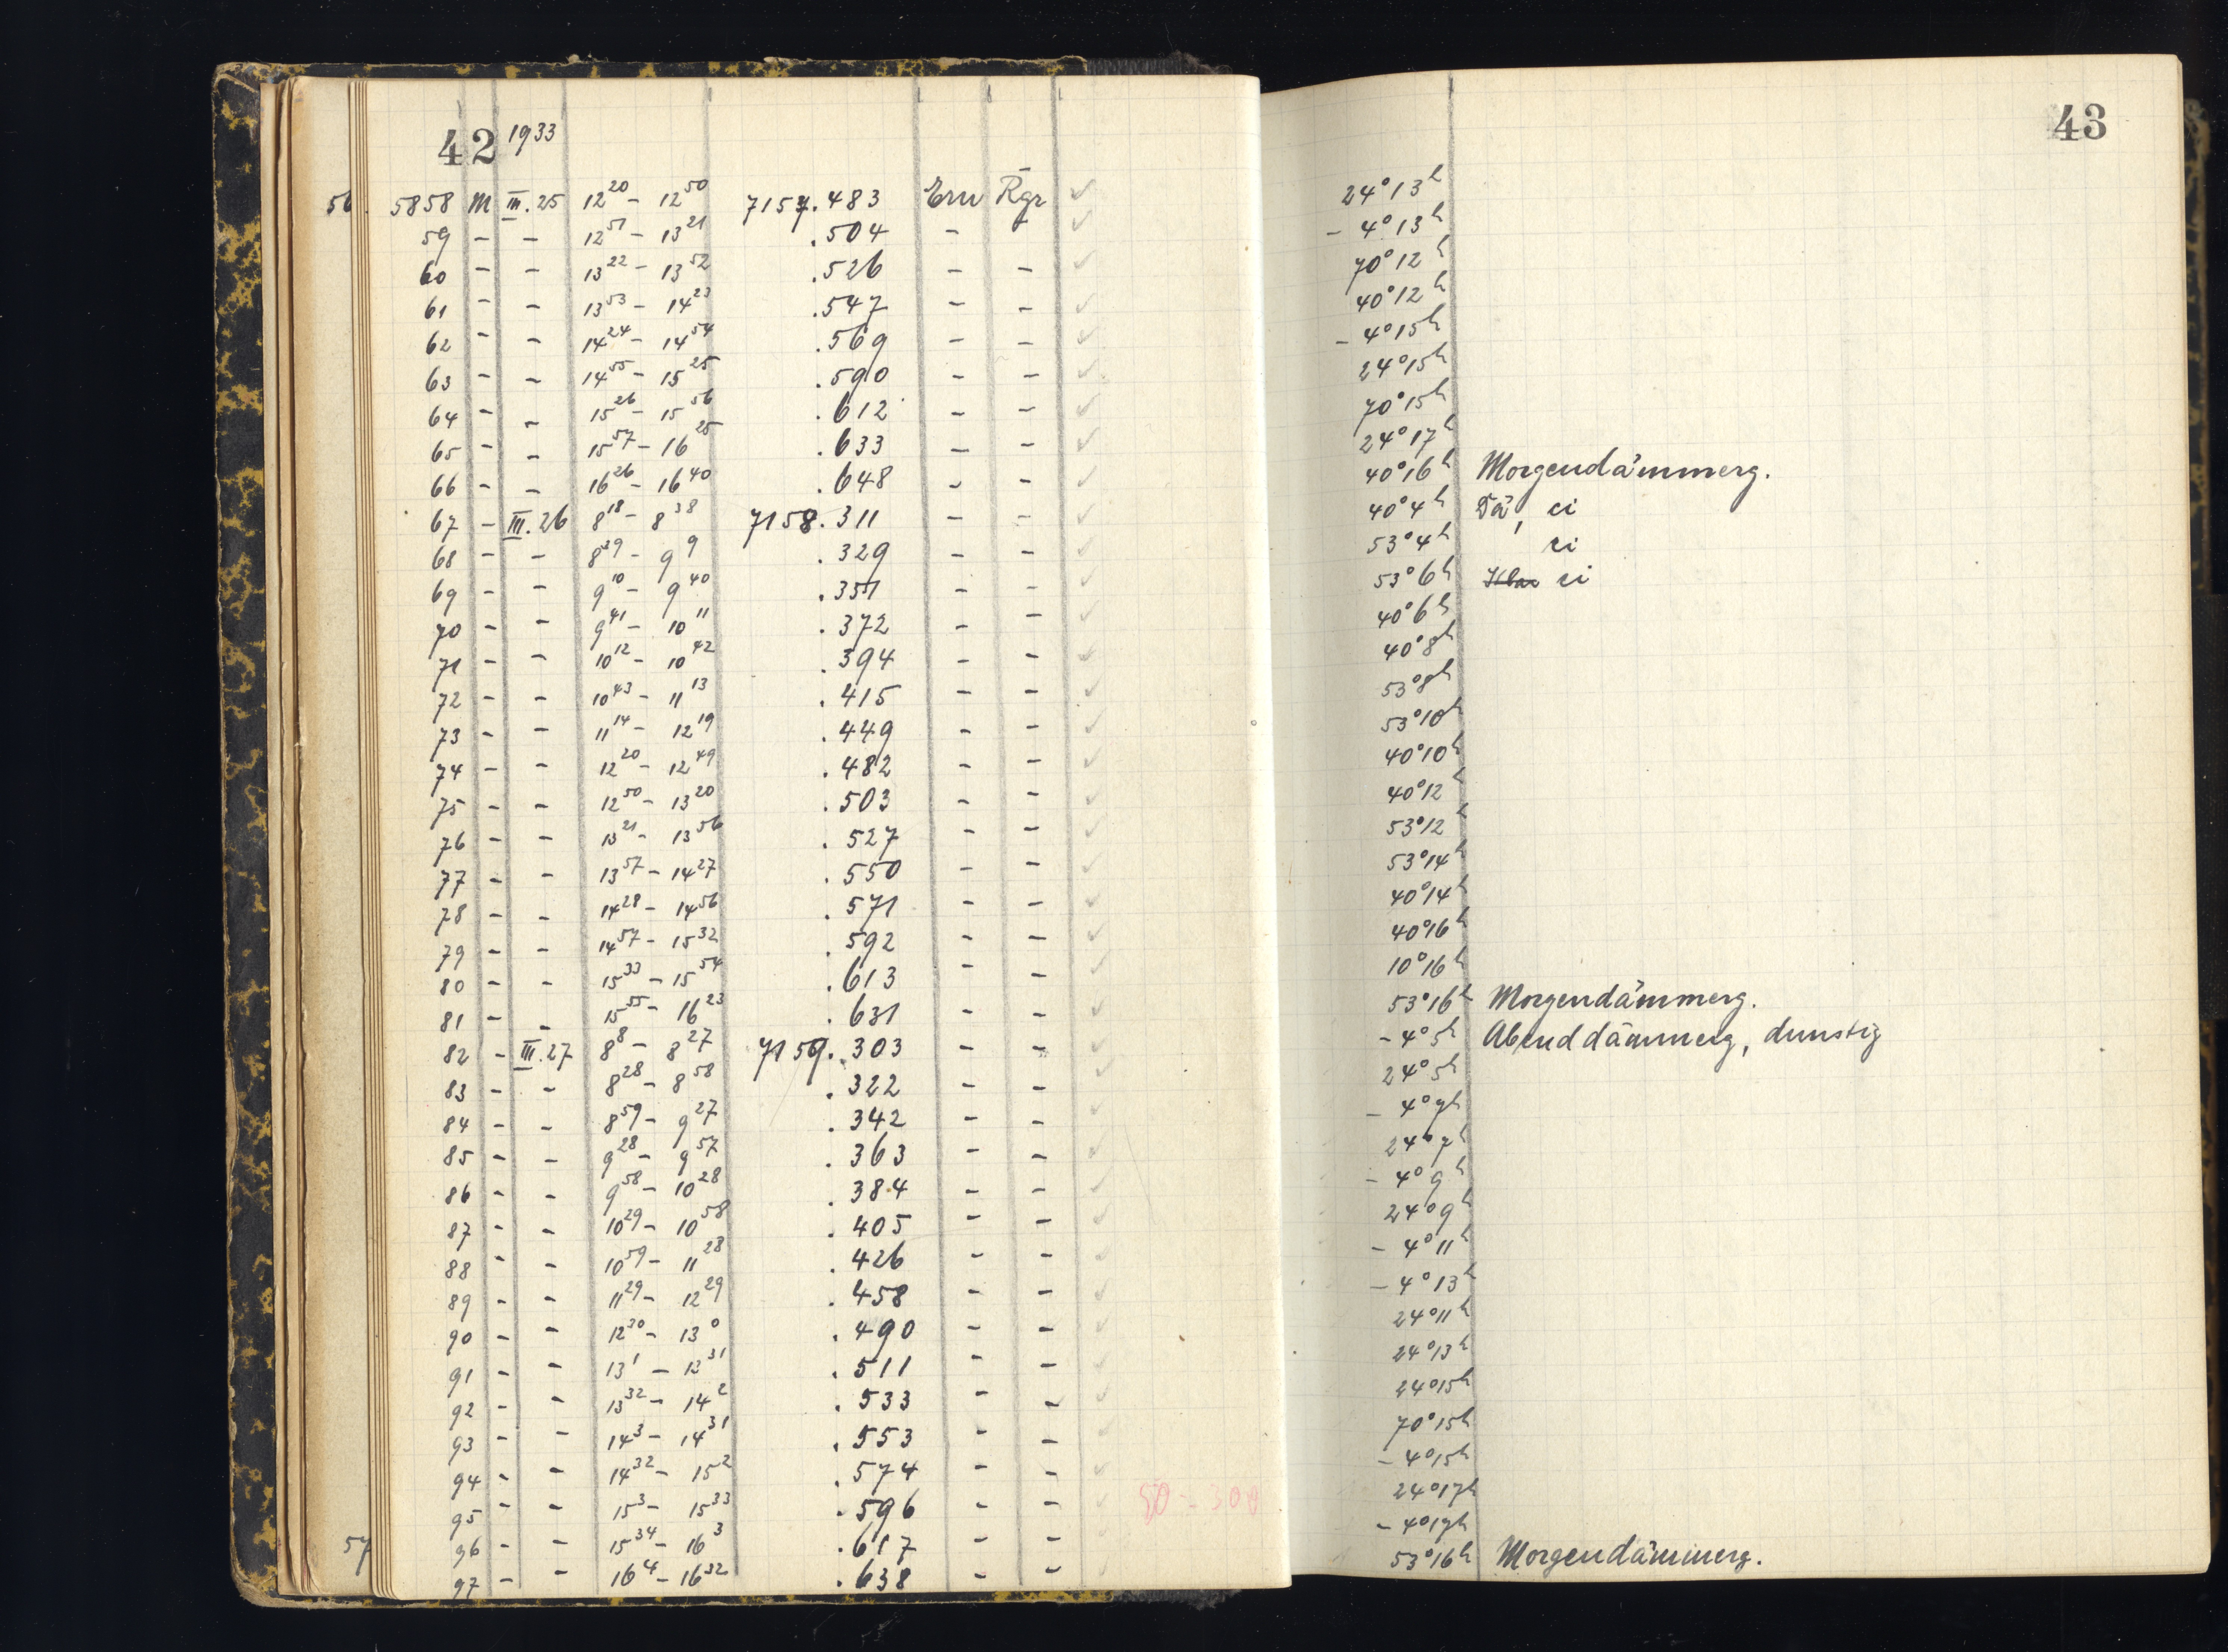 42 1933
43
56 5858 M III.25 12²⁰ - 12⁵⁰ 7157.483 Em Rgr ✓ 24° 13h
59 - - 12⁵¹ - 13²¹ .504 - - ✓ - 4° 13h
60 - - 13²² - 13⁵² .526 - - ✓ 70° 12h
61 - - 13⁵³ - 14²³ .547 - - ✓ 40° 12h
62 - - 14²⁴ - 14⁵⁴ .569 - - ✓ - 4° 15h
63 - - 14⁵⁵ - 15²⁵ .590 - - ✓ 24° 15h
64 - - 15²⁶ - 15⁵⁶ .612 - - ✓ 70° 15h
65 - - 15⁵⁷ - 16²⁵ .633 - - ✓ 24° 17h
66 - - 16²⁶ - 16⁴⁰ .648 - - ✓ 40° 16h Morgendämmerg.
67 - III.26 8¹⁸ - 8³⁸ 7158.311 - - ✓ 40° 4h Dä, ci
68 - - 8³⁹ - 9⁹ .329 - - ✓ 53° 4h ci
69 - - 9¹⁰ - 9⁴⁰ .351 - - ✓ 53° 6h ci
70 - - 9⁴¹ - 10¹¹ .372 - - ✓ 40° 6h
71 - - 10¹² - 10⁴² .394 - - ✓ 40° 8h
72 - - 10⁴³ - 11¹³ .415 - - ✓ 53° 8h
73 - - 11¹⁴ - 12¹⁹ .449 - - ✓ 53° 10h
74 - - 12²⁰ - 12⁴⁹ .482 - - ✓ 40° 10h
75 - - 12⁵⁰ - 13²⁰ .503 - - ✓ 40° 12h
76 - - 13²¹ - 13⁵⁶ .527 - - ✓ 53° 12h
77 - - 13⁵⁷ - 14²⁷ .550 - - ✓ 53° 14h
78 - - 14²⁸ - 14⁵⁶ .571 - - ✓ 40° 14h
79 - - 14⁵⁷ - 15³² .592 - - ✓ 40° 16h
80 - - 15³³ - 15⁵⁴ .613 - - ✓ 10° 16h
81 - - 15⁵⁵ - 16²³ .631 - - ✓ 53° 16h Morgendämmerg.
82 - III.27 8⁸ - 8²⁷ 7159.303 - - ✓ - 4° 5h Abenddämmerg, dunstig
83 - - 8²⁸ - 8⁵⁸ .322 - - ✓ 24° 5h
84 - - 8⁵⁹ - 9²⁷ .342 - - ✓ - 4° 7h
85 - - 9²⁸ - 9⁵⁷ .363 - - ✓ 24° 7h
86 - - 9⁵⁸ - 10²⁸ .384 - - ✓ - 4° 9h
87 - - 10²⁹ - 10⁵⁸ .405 - - ✓ 24° 9h
88 - - 10⁵⁹ - 11²⁸ .426 - - ✓ - 4° 11h
89 - - 11²⁹ - 12²⁹ .458 - - ✓ - 4° 13h
90 - - 12³⁰ - 13⁰ .490 - - ✓ 24° 11h
91 - - 13¹ - 13³¹ .511 - - ✓ 24° 13h
92 - - 13³² - 14² .533 - - ✓ 24° 15h
93 - - 14³ - 14³¹ .553 - - ✓ 70° 15h
94 - - 14³² - 15² .574 - - ✓ - 4° 15h
95 - - 15³ - 15³³ .596 - - ✓ 24° 17h
57 96 - - 15³⁴ - 16³ .617 - - - 4° 17h
97 - - 16⁴ - 16³² .638 - - 53° 16h Morgendämmerg.